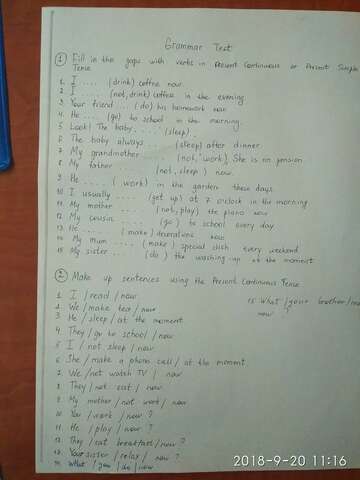 Grammar Test
1 Fill in the gaps with verbs in Present Continuous or Present Simple
Tense
1. I .... (drink) coffee now.
2. I .... (not, drink) coffee in the evening.
3. Your friend .... (do) his homework now.
4. He .... (go) to school in the morning.
5. Look! The baby .... (sleep).
6. The baby always .... (sleep) after dinner
7. My grandmother .... (not, work). She is on pension.
8. My father .... (not, sleep) now.
9. He .... (work) in the garden these days.
10. I usually .... (get up) at 7 o'clock in the morning
11. My mother .... (not, play) the piano now
12. My cousin .... (go) to school every day
13. He .... (make) decorations now.
14. My mum .... (make) special dish every weekend.
15. My sister .... (do) the washing-up at the moment
2 Make up sentences using the Present Continuous Tense
1. I / read / now
2. We / make tea / now
3. He / sleep / at the moment
4. They / go to school / now
5. I / not sleep / now
6. She / make a phone call / at the moment
7. We / not watch TV / now
8. They / not eat / now
9. My mother / not work / now
10. You / work / now ?
11. He / play / now ?
12. They / eat breakfast / now ?
13. Your sister / relax / now ?
14. What / you / do / now
15 What / your brother /
now ?
2018-9-20 11:16